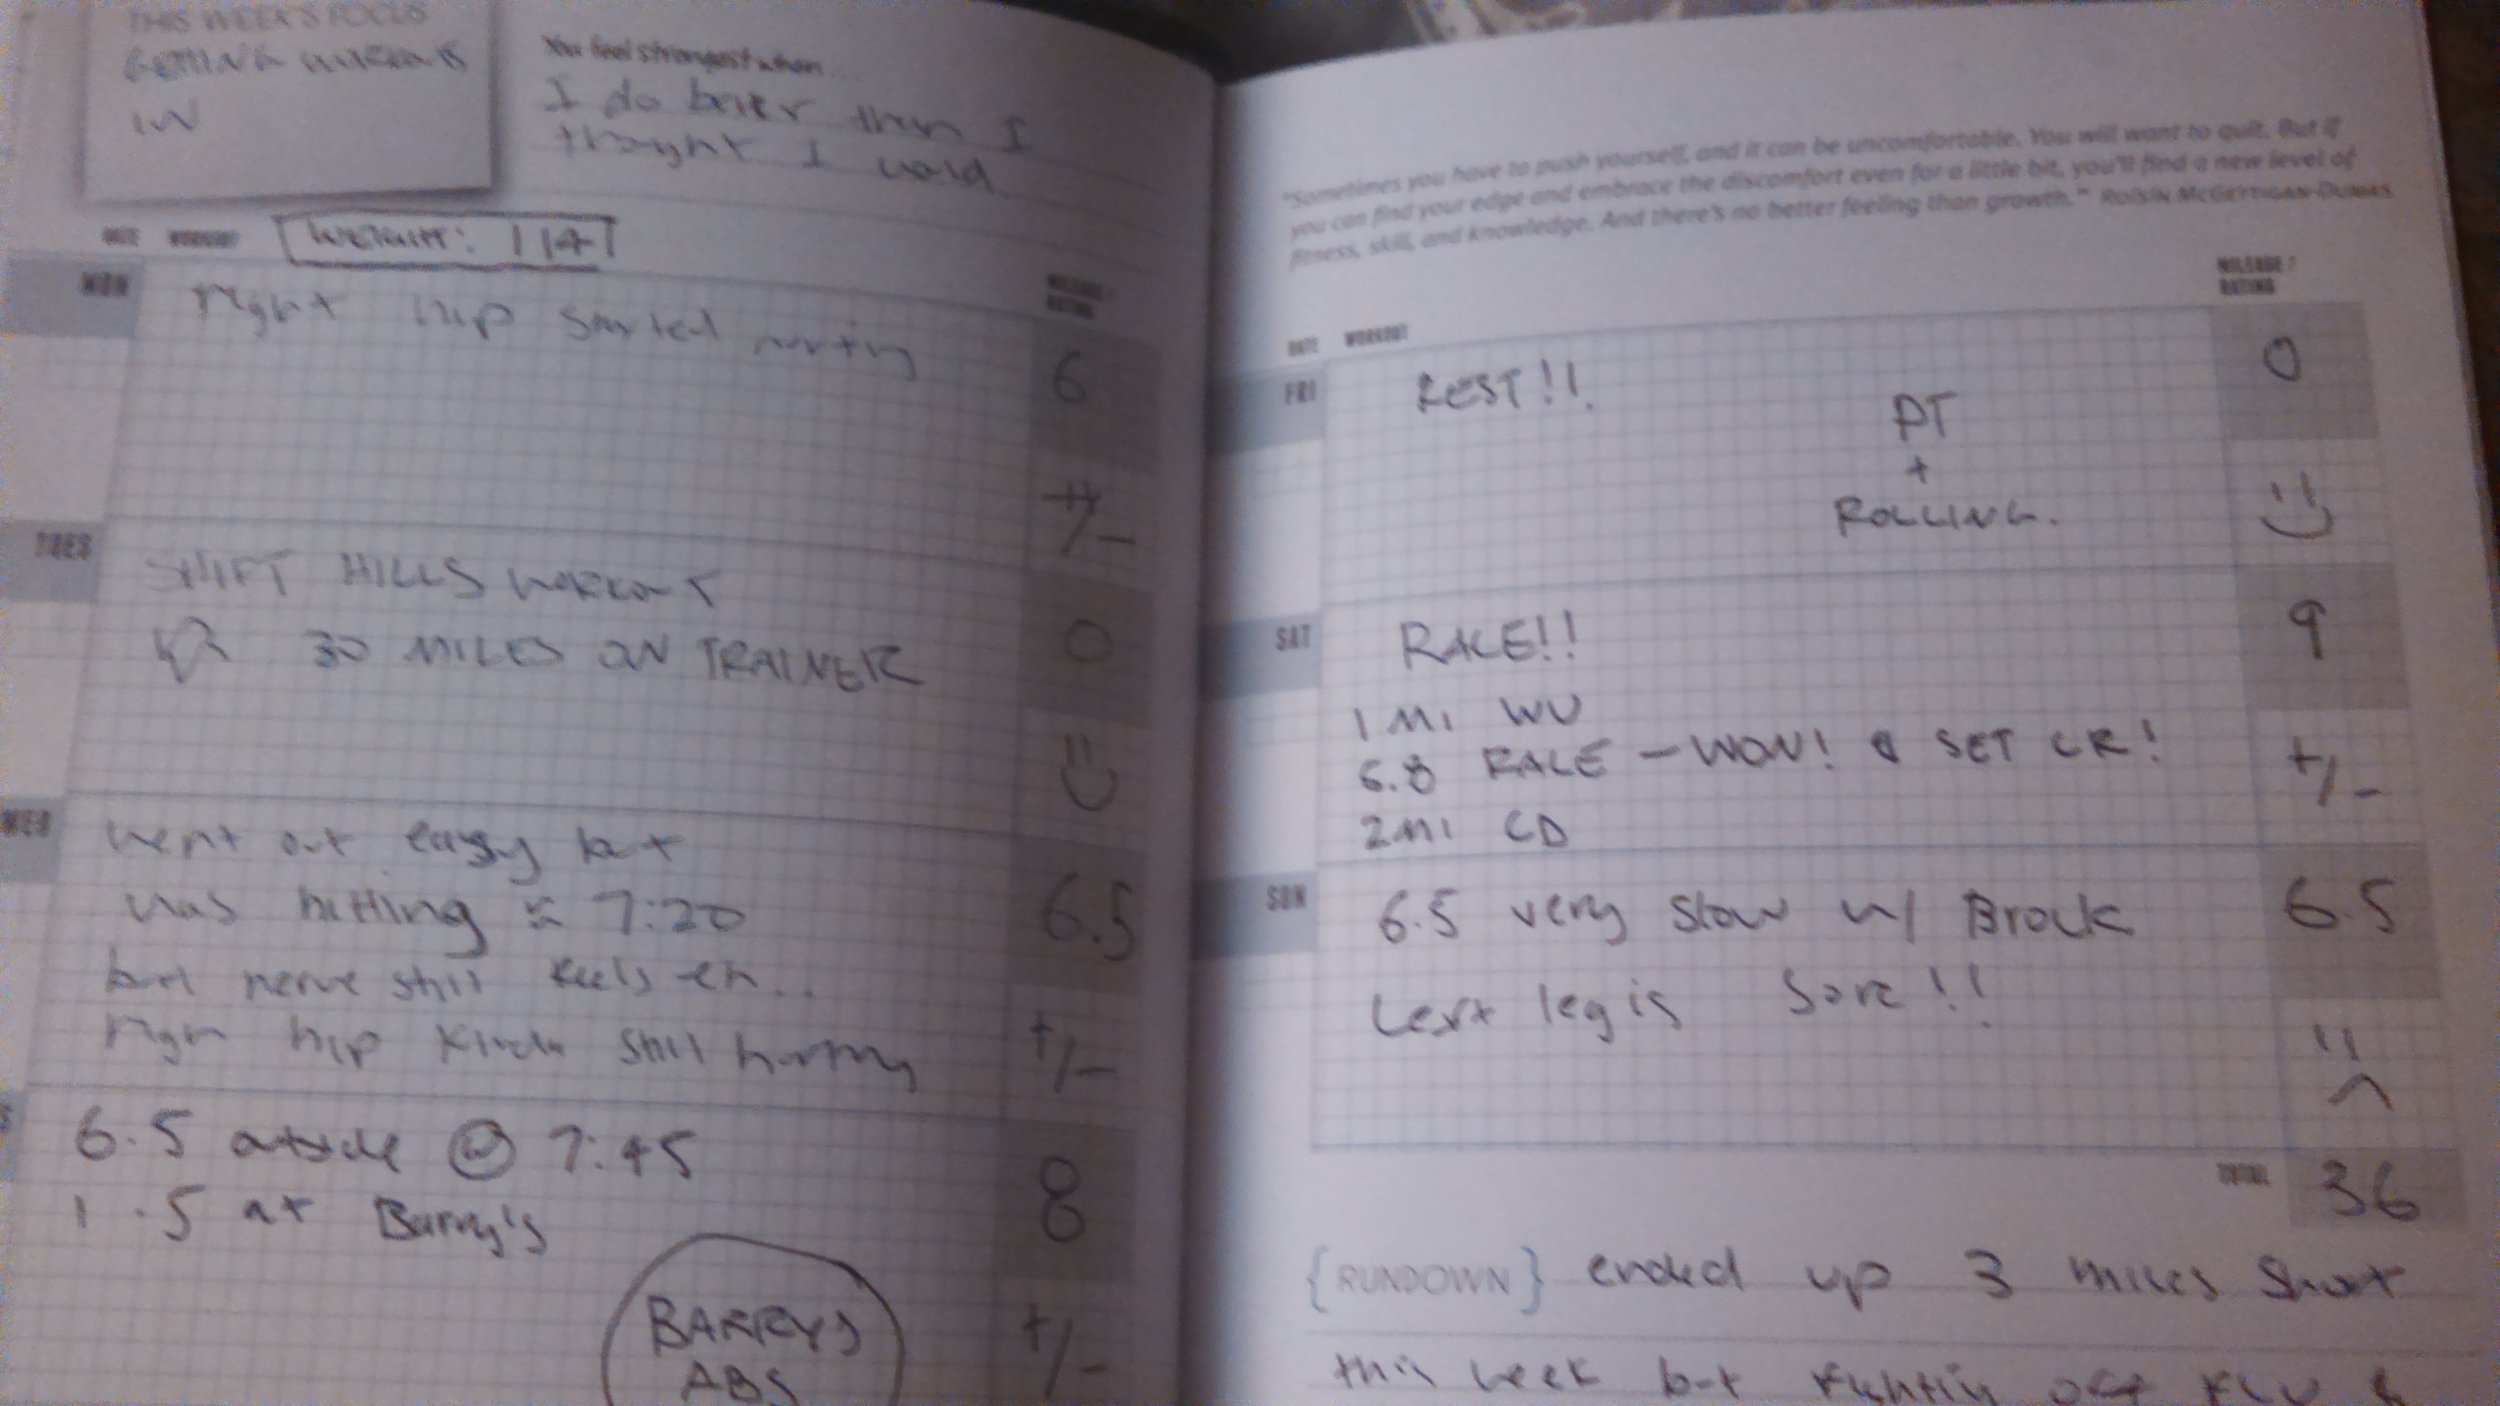 THIS WEEK'S FOCUS
GETTING WORKOUTS
IN
You feel strongest when...
I do better than I
thought I would
DATE WORKOUT
WEIGHT: 114
MILEAGE /
RATING
MON
right hip started hurting
6
+/-
TUES
SHIFT HILLS WORKOUT
30 MILES ON TRAINER
0
WED
went out easy but
was hitting ≈ 7:20
but nerve still feels eh..
right hip kinda still hurting
6.5
+/-
S
6.5 outside @ 7:45
1.5 at Barry's
8
BARRYS
ABS
+/-
"Sometimes you have to push yourself, and it can be uncomfortable. You will want to quit. But if
you can find your edge and embrace the discomfort even for a little bit, you'll find a new level of
fitness, skill, and knowledge. And there's no better feeling than growth." ROISIN MCGETTIGAN-DUMAS
DATE WORKOUT
MILEAGE /
RATING
FRI
REST!!
0
PT
+
ROLLING.
SAT
RACE!!
9
1 MI WU
6.8 RACE - WON! & SET CR!
2 MI CD
+/-
SUN
6.5 very slow w/ Brock
Left leg is sore!!
6.5
TOTAL
36
{RUNDOWN} ended up 3 miles short
this week but fightin off flu &